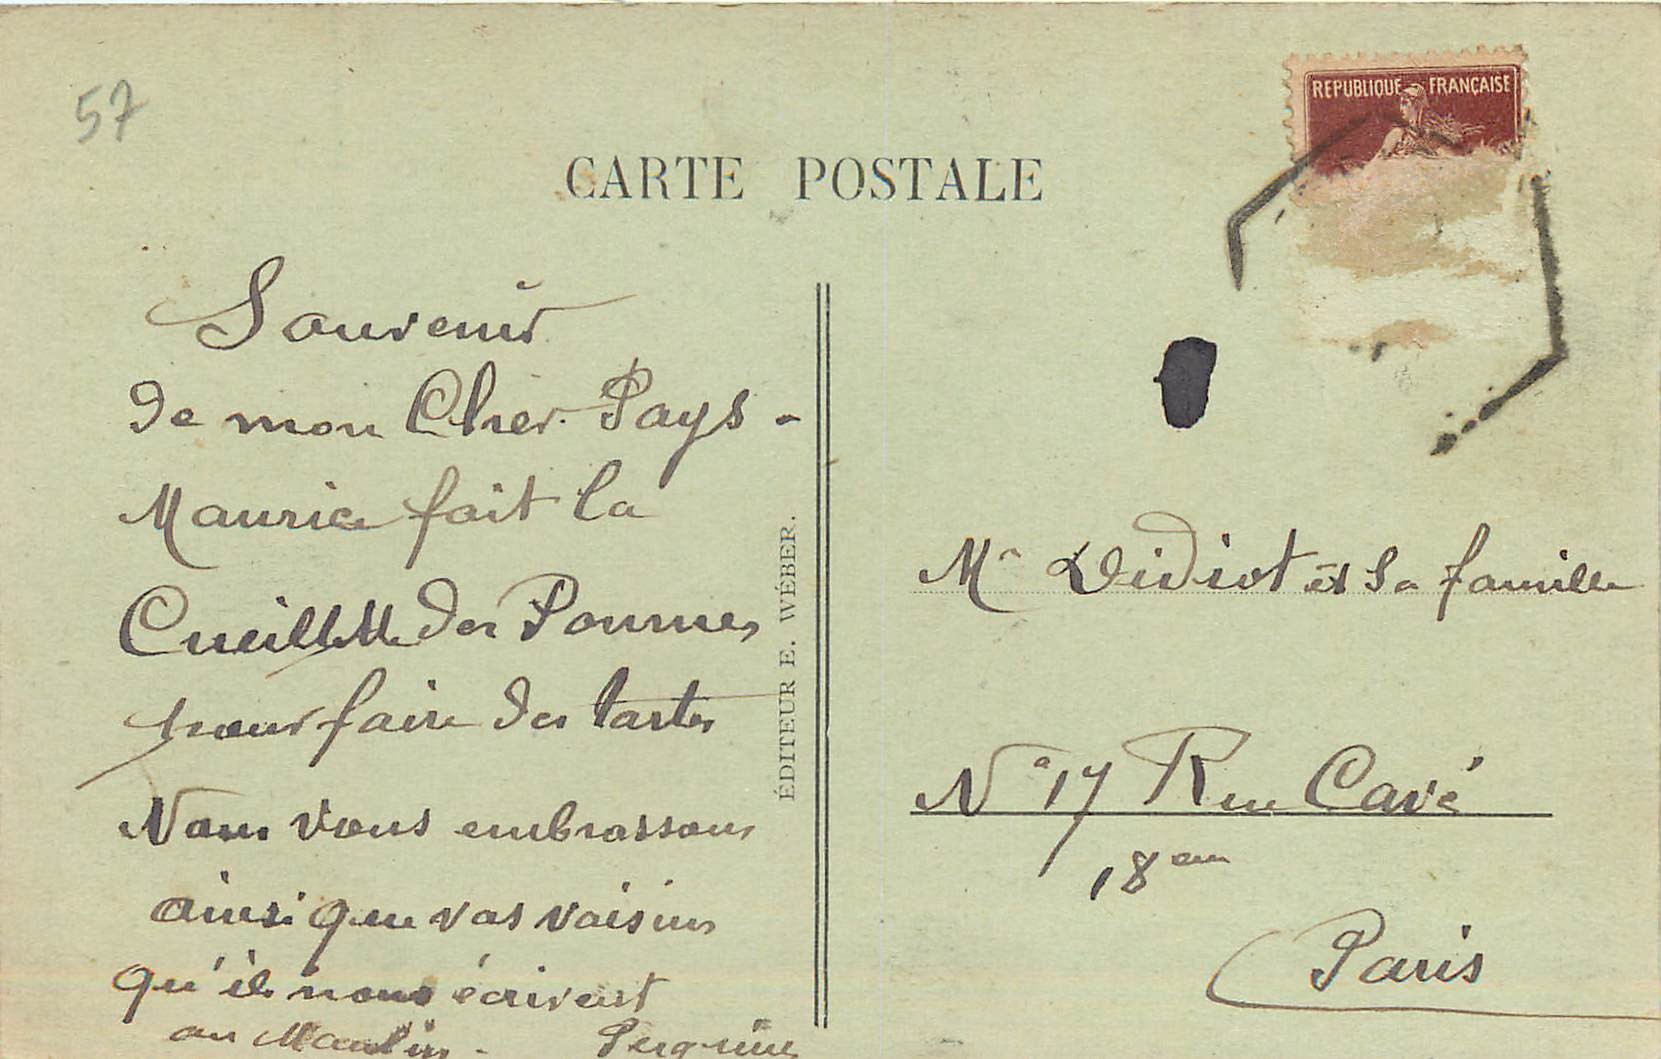 57
REPUBLIQUE FRANÇAISE
CARTE POSTALE
Souvenir
de mon Cher Pays -
Maurice fait la
Cueillette des Pommes
pour faire des tartes
Nous vous embrassons
ainsi que vos voisins
qu'ils nous écrivent
au Moulin -
ÉDITEUR E. WÉBER.
Mr Didiot et Sa famille
No 17 Rue Cavé
18em
Paris